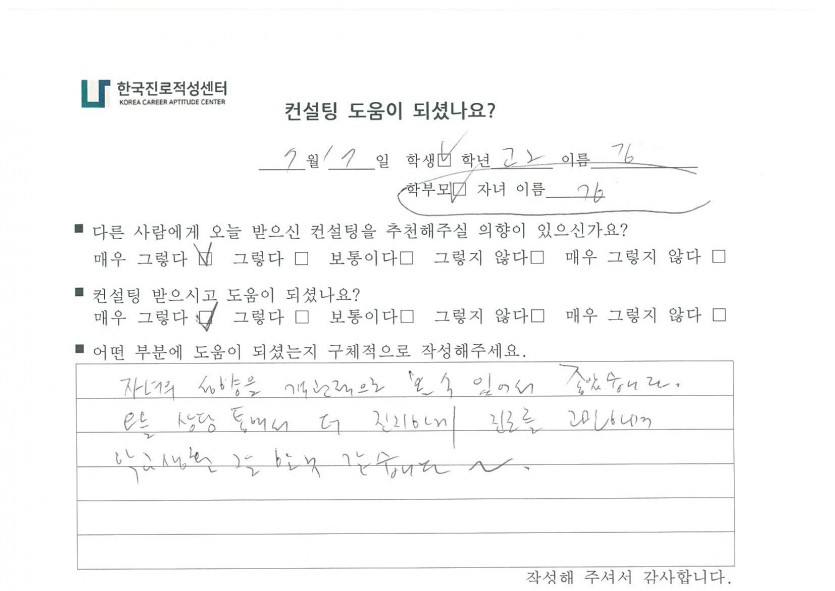 한국진로적성센터
KOREA CAREER APTITUDE CENTER
컨설팅 도움이 되셨나요?
7월 17일 학생☑ 학년 고2 이름 김
학부모☑ 자녀 이름 김
■ 다른 사람에게 오늘 받으신 컨설팅을 추천해주실 의향이 있으신가요?
매우 그렇다 ☑ 그렇다 □ 보통이다□ 그렇지 않다□ 매우 그렇지 않다 □
■ 컨설팅 받으시고 도움이 되셨나요?
매우 그렇다 ☑ 그렇다 □ 보통이다□ 그렇지 않다□ 매우 그렇지 않다 □
■ 어떤 부분에 도움이 되셨는지 구체적으로 작성해주세요.
자녀의 성향을 객관적으로 볼 수 있어서 좋았습니다.
오늘 상담 통해서 더 진지하게 진로를 고민하며
학교생활 것 같습니다 ~.
작성해 주셔서 감사합니다.